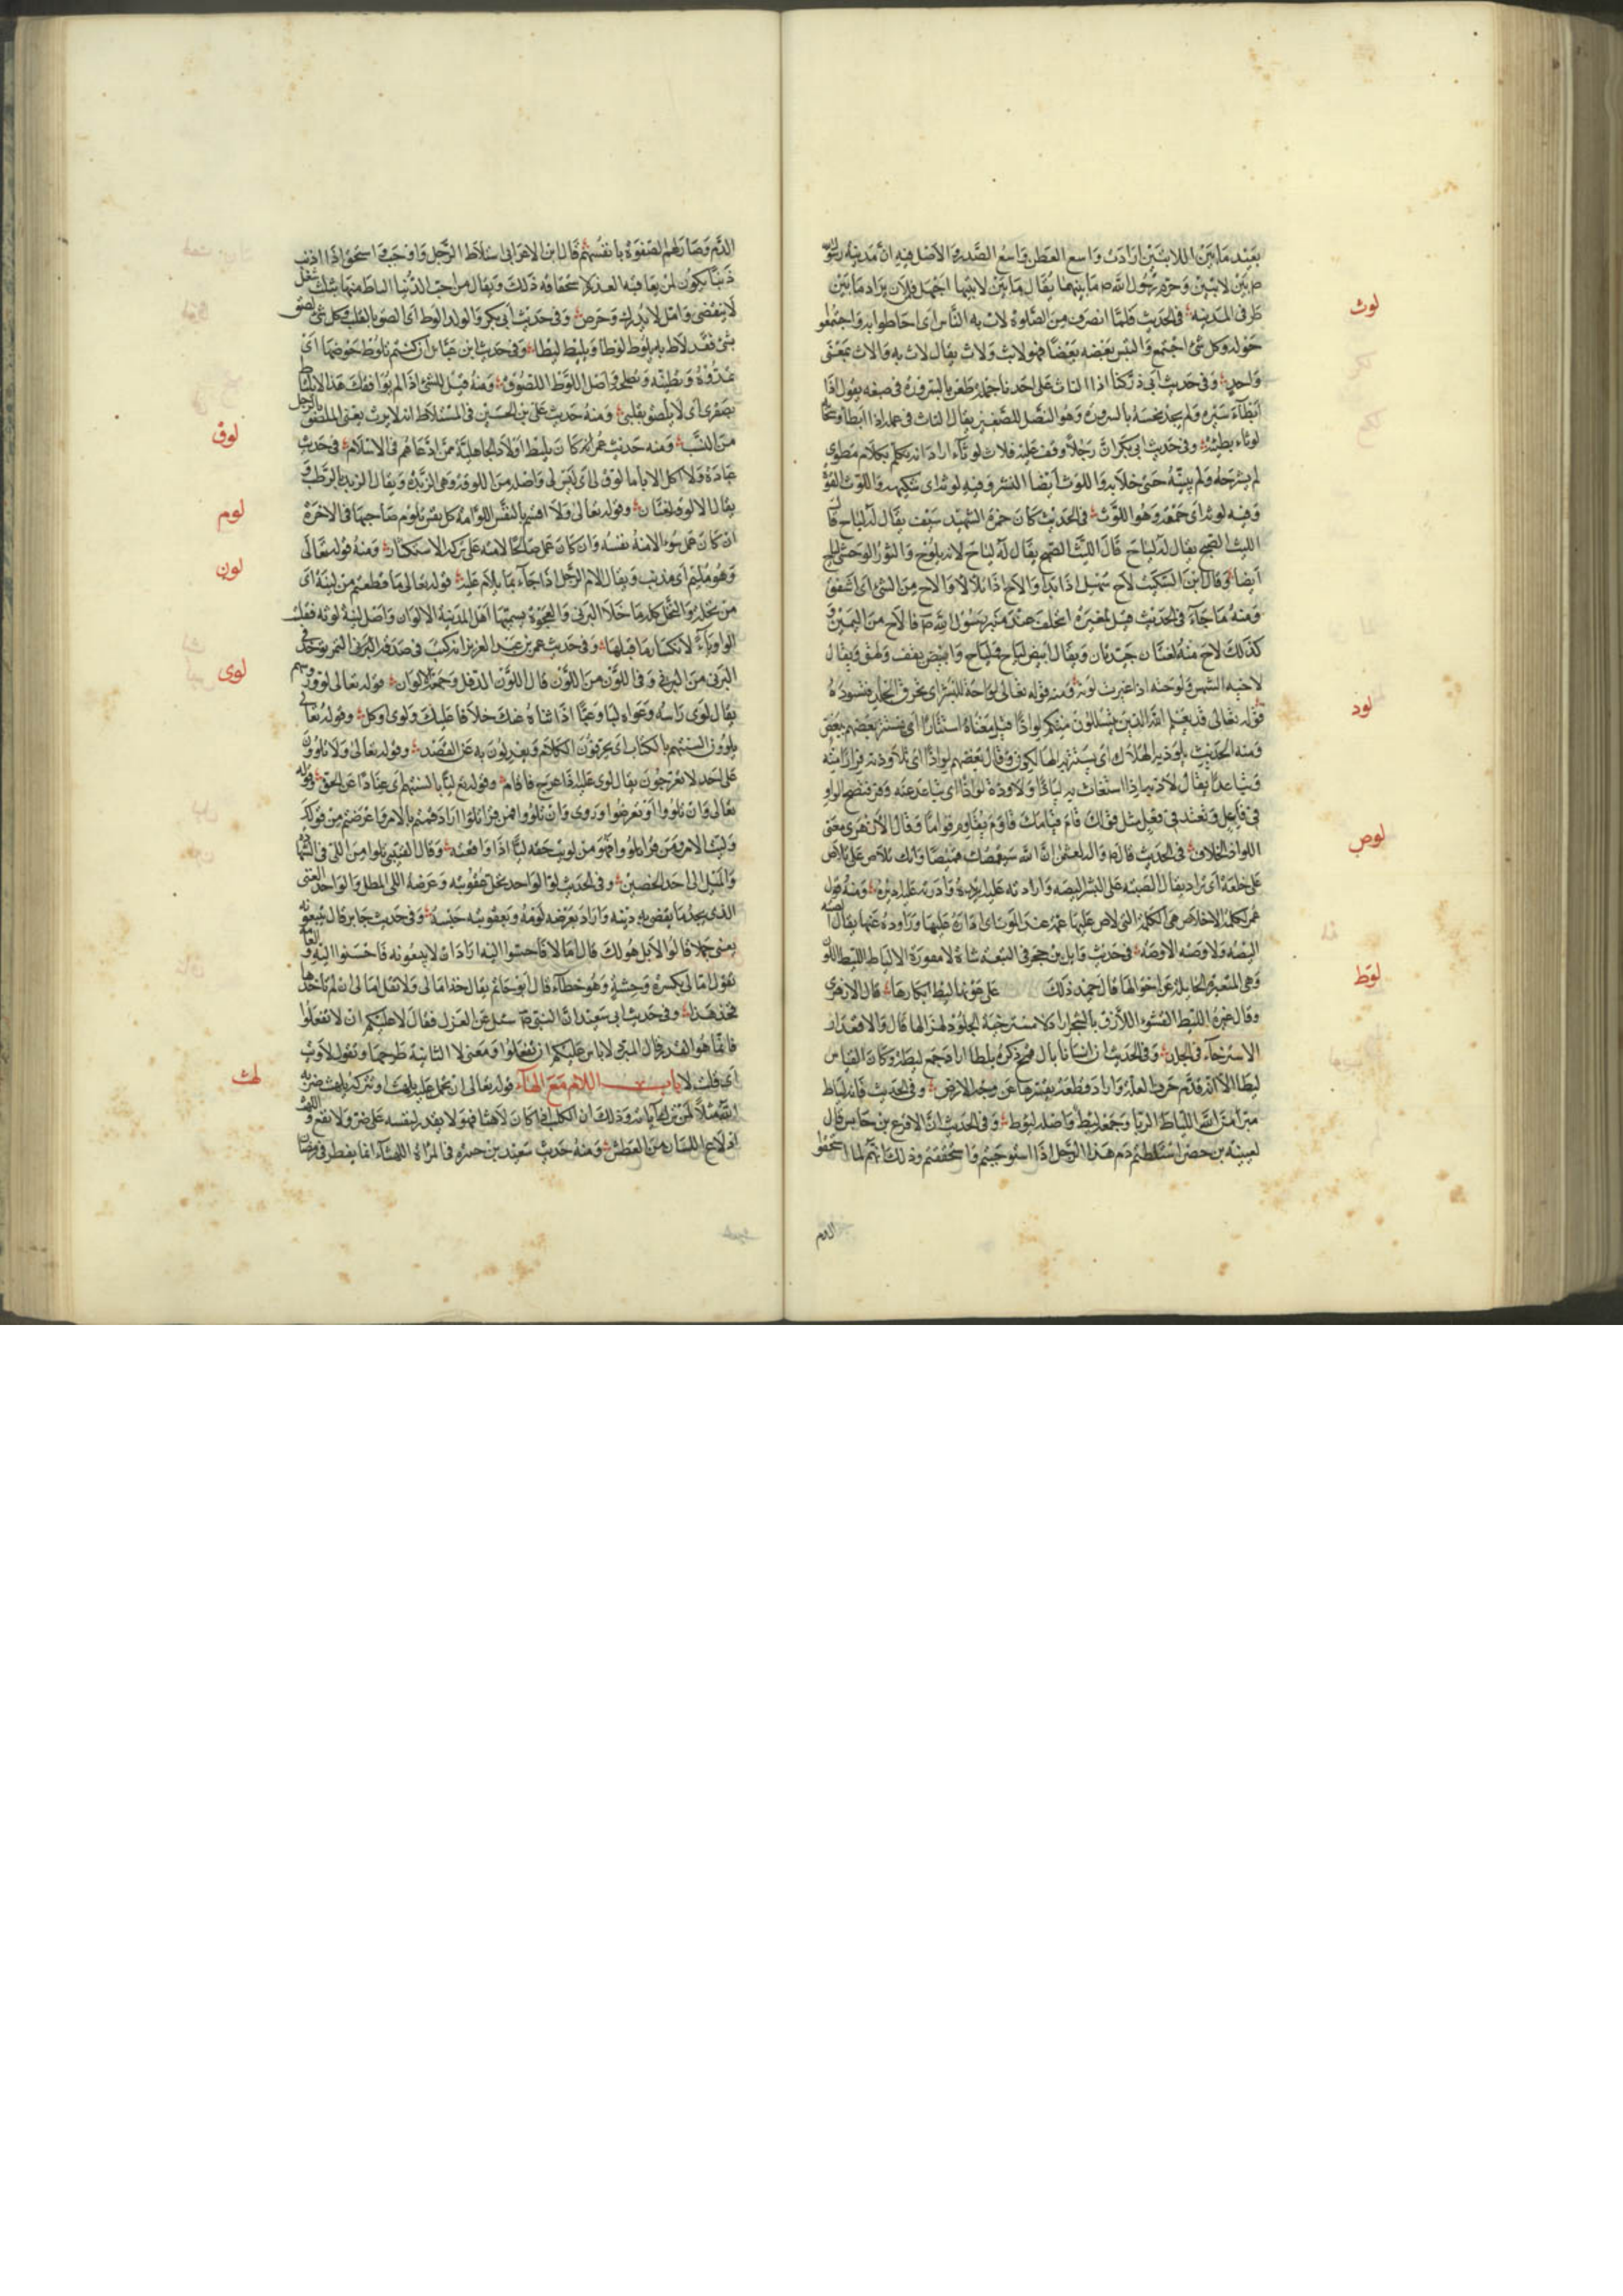 بعيد ما بين اللابتين ارادت واسع العطن واسع الصدر والاصل فيه ان مدينة رسول الله
ص بين لابتين وحرم رسول الله ص ما بينهما يقال ما بين لابتيها اجهل فلان يراد ما بين
طرفى المدينة فى الحديث فلما انصرف من الصلوة لاث به الناس اى احاطوا به واجتمعوا
لوث
حوله وكل شئ اجتمع والتبس بعضه ببعض فهو لائث ولاث يقال لاث به والاث بمعنى
واحد وفى حديث ابى ذر كنا اذا التاث على احدنا جمله طعن بالسروة فى ضبعه يقول اذا
ابطاء سيره ولم يجد نخسه بالسروة وهو النصل الصغير يقال التاث فى عمله اذا ابطأ
لوثاء بطيئة وفى حديث ابى بكر ان رجلا وقف عليه فلاث لوثا اراد انه تكلم بكلام مطوى
لم يشرحه ولم يبينه حتى خلا به واللوث ايضا الشر وفيه لوثة اى واللوث القوة
وفيه لوثة اى حمقة وهو اللوث فى الحديث كان حمزة الشهيد سيف يقال له لياح قال
الليث الصبح يقال له لياح قال الليث الصبح يقال له لياح لانه يلوح والثور الوحشى لياح
ايضا وقال ابن السكيت لاح سهيل اذا بدا والاح اذا تلألأ والاح من الشئ اى اشفق
ومنه ما جاء فى الحديث قيل لمغيرة اتحلف عند منبر رسول الله ص فالاح من اليمين
كذلك لاح منه لغتان جيدتان ويقال ابيض لياح ولياح وابيض يقق ولهق ويقال
لاحته الشمس ولوحته اذا غيرت لونه ومنه قوله تعالى لواحة للبشر اى تحرق الجلد فتسوده
قوله تعالى قد يعلم الله الذين يتسللون منكم لواذا قيل معناه استتارا اى يستتر بعضهم ببعض
لوذ
ومنه الحديث يلوذ به الهلاك اى يستتر به الهالكون وقال بعضهم لواذا اى تلاوذته فرارا منه
وتباعدا يقال لاذ به اذا استغاث به لياذا ولاوذه لواذا اى تباعد عنه
فى فاعل وتعتد فى فعل مثل قولك قام قياما وقاوم يقاوم قواما وقال الازهرى معنى
اللواذ الخلاف فى الحديث قال ص وآله لعثمن ان الله سيقمصك قميصا وانك تلاص على
لوص
خلعه اى تراد يقال الصته على الشئ اليصه واراد ته عليه اريده وادرته عليه اديره ومنه قول
عمر لكلمة الاخلاص هى الكلمة التى الاص عليها عمه عند الموت اى اداره عليها وراوده عنها يقال
اليصه ولاوصته الاوصه فى حديث وايل بن حجر فى التيعة شاة لا مقورة الالياط الليط اللون
لوط
وهى المتغيرة الحايلة عن احوالها قال حميد ذلك قال الازهرى
وقال غيره الليط القشر اللازق بالشجر اراد لا مسترخية الجلود لهزالها قال والاقورار
الاسترخاء فى الجلد وفى الحديث ان انسانا قال بليطا اراد جمع ليطة وكان القياس
ليطا الا انه قدم حرف العلة واراد قطعة يقشرها عن وجه الارض وفى الحديث فانه لياط
مبرا من الله اللياط الربا وجمعه ليط واصله لوط وفى الحديث ان الاقرع بن حابس قال
لعيينة بن حصن استلطتم دم هذا الرجل اذا استوجبتم واستحققتم وذلك انهم لما استحقوا
الدم
الدم وصار لهم الصقوه بانفسهم قال ابن الاعرابى استلاط الرجل واوجب واستحق اذا اذنب
ذنبا يكون لمن يعاقبه العذر لاستحقاقه ذلك ويقال من احب الدنيا الباط منها بثلث شغل
لا ينقضى وامل لا يدرك وحرص وفى حديث ابى بكر والولد الوط اى الصق بالقلب وكل شئ لصق
بشئ فقد لاط به يلوط لوطا ويليط ليطا وفى حديث ابن عباس ان كنتم تلوط حوضها اى
تمدره وتطينه وتصلحه واصل اللوط اللصوق ومنه قيل للشئ اذا لم يوافقك هذا لا يلتاط
بصفرى اى لا يلصق بقلبى ومنه حديث على بن الحسين فى المستلاط انه لا يرث يعنى الملصق بالرجل
من النسب ومنه حديث عمر انه كان يليط اولاد الجاهلية ممن ادعاهم فى الاسلام فى حديث
لوق
عبادة ولا آكل الا ما لوق لى اى لين لى واصله من اللوقة وهى الزبدة ويقال الزبد بالرطب
يقال الالوقة لغتان وقوله تعالى ولا اقسم بالنفس اللوامة كل نفس تلوم صاحبها فى الاخرة
لوم
ان كان عمل سوءا لامته نفسه وان كان عمل صالحا لامته على تركه الاستكثار ومنه قوله تعالى
وهو مليم اى مذنب ويقال الام الرجل اذا جاء بما يلام عليه قوله تعالى ما قطعتم من لينة اى
لون
من نخلة والنخل كله ما خلا البرنى والعجوة يسميها اهل المدينة الالوان واصل لينة لونة فقلبت
الواو ياء لانكسار ما قبلها وفى حديث عمر بن عبد العزيز انه كتب فى صدقة التمر يؤخذ فى
البرنى من البرنى وفى اللون من اللون قال اللون الدقل وجمعه الالوان قوله تعالى لووا رؤسهم
لوى
يقال لوى راسه وعواه ليا وعيا اذا ثناه عنك خلافا عليك ولوى اوكل وقوله تعالى
يلوون السنتهم بالكتاب اى يحرفون الكلام ويعدلون به عن القصد وقوله تعالى ولا تلوون
على احد لا تعرجون يقال لوى عليه اذا عرج فاقام وقوله تع ليا بالسنتهم اى عنادا عن الحق وقوله
تعالى وان تلووا او تعرضوا وروى وان تلوا فمن قرا تلوا اراد قمتم بالامر واعرضتم من قولك
وليت الامر ومن قرا تلووا فهو من لويت حقه ليا اذا دافعته وقال القتيبى تلووا من اللى فى الشهادة
والميل الى احد الخصمين وفى الحديث لى الواجد يحل عقوبته وعرضه اللى المطل والواجد الغنى
الذى يجد ما يقضى به دينه واراد بعرضه لومه وبعقوبته حبسه وفى حديث جابر قال تبيعونه
يعنى جملا قالوا لا بل هو لك قال اما لا فاحسنوا اليه اراد ان لا تبيعونه فاحسنوا اليه
تقول امالى بكسرة وحشية وهو خطاء قال ابو حاتم يقال خذ امالى ولا تقل امالى ان لم تاخذ
فخذ هذا وفى حديث ابى سعيد ان النبى ص سئل عن العزل فقال لا عليكم ان لا تفعلوا
فانما هو القدر قال المبرد لا باس عليكم ان تفعلوا ومعنى لا الثانية طرحها وتقول لاويت
اى قلت لا باب اللام مع الهاء قوله تعالى ان تحمل عليه يلهث او تتركه يلهث ضرب
لهث
الله مثلا لمن ترك آياته وذلك ان الكلب اذا كان لاهثا فهو لا يقدر لنفسه على ضر ولا نفع
اندلاع اللسان من العطش ومنه حديث سعيد بن جبير فى المراة اللهثاء انها تفطر فى رمضان